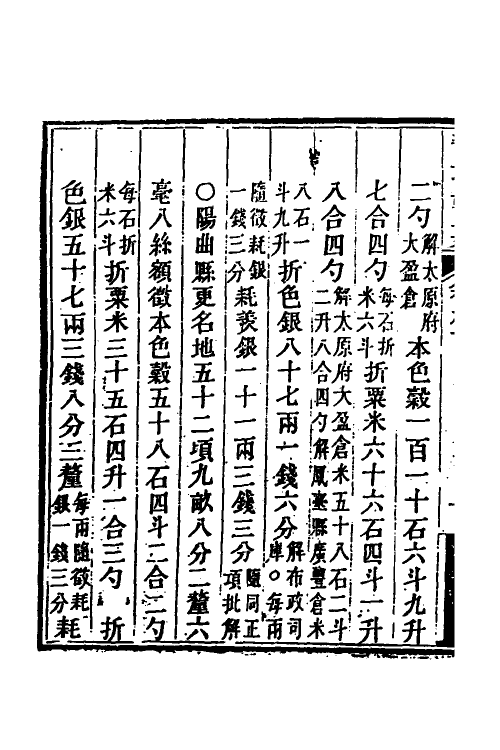 二勺解太原府大盈倉本色穀一百一十石六斗九升
七合四勺每石折米六斗折粟米六十六石四斗一升
八合四勺解太原府大盈倉米五十八石二斗二升八合四勺解鳳臺縣廣豐倉米
八石一斗九升折色銀八十七兩一錢六分解布政司庫○每兩
隨徵耗銀一錢三分耗羨銀一十一兩三錢三分隨同正項批解
○陽曲縣更名地五十二項九畝八分二釐六
毫八絲額徵本色穀五十八石四斗二合二勺
每石折米六斗折粟米三十五石四升一合三勺 折
色銀五十七兩三錢八分三釐每兩隨徵耗銀一錢三分耗